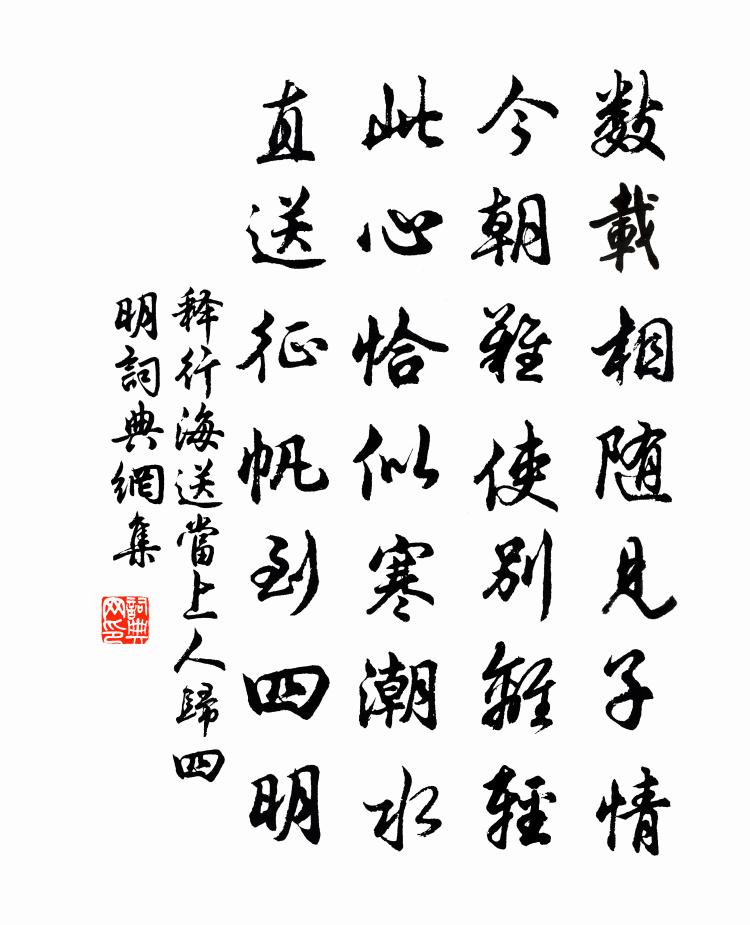 数載相随見子情
今朝難使别離輕
此心恰似寒潮水
直送征帆到四明
释行海送當上人歸四
明詞典網集
詞典网印